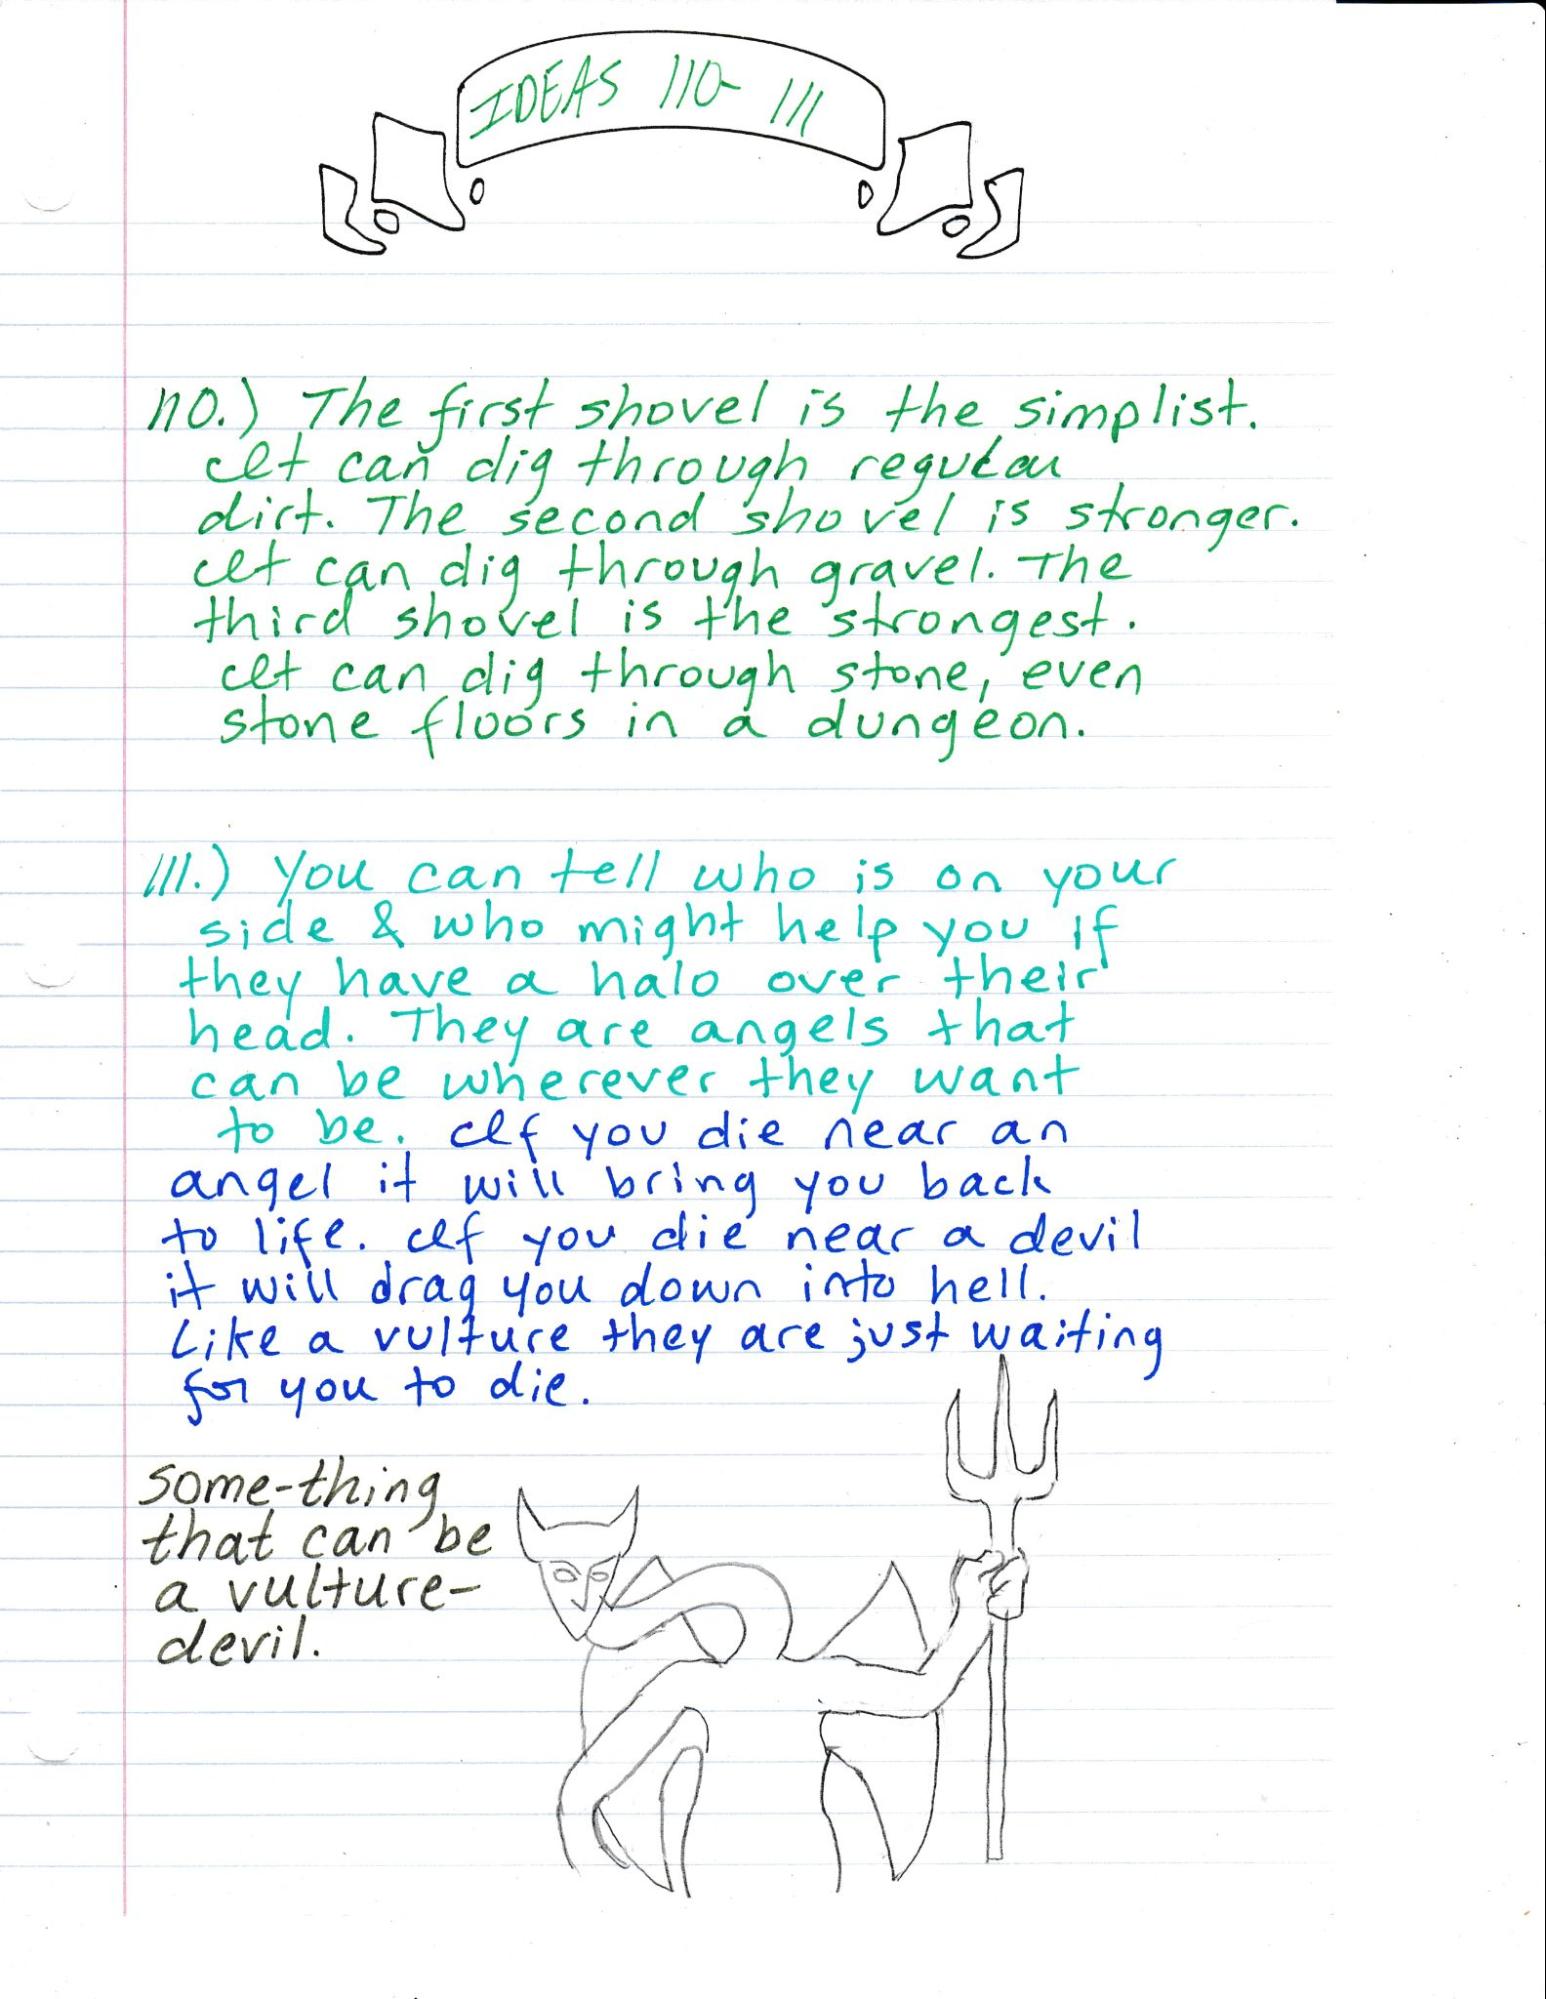 IDEAS 110- 111
110.) The first shovel is the simplist.
It can dig through regular
dirt. The second shovel is stronger.
It can dig through gravel. The
third shovel is the strongest.
It can dig through stone, even
stone floors in a dungeon.
111.) You can tell who is on your
side & who might help you if
they have a halo over their
head. They are angels that
can be wherever they want
to be. If you die near an
angel it will bring you back
to life. If you die near a devil
it will drag you down into hell.
Like a vulture they are just waiting
for you to die.
some-thing
that can be
a vulture-
devil.